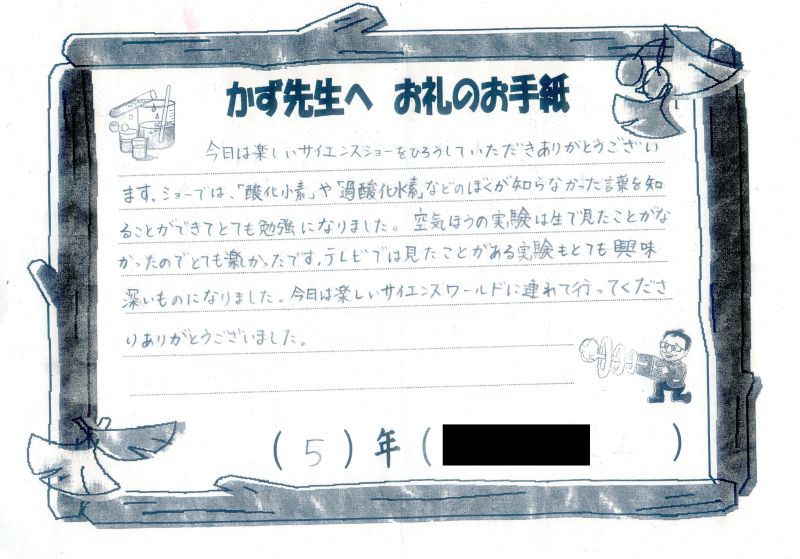 かず先生へ お礼のお手紙
今日は楽しいサイエンスショーをひろうしていただきありがとうござい
ます。ショーでは、「酸化小素」や「過酸化水素」などのぼくが知らなかった言葉を知
ることができてとても勉強になりました。空気ほうの実験は生で見たことがな
かったのでとても楽しかったです。テレビでは見たことがある実験もとても興味
深いものになりました。今日は楽しいサイエンスワールドに連れて行ってくださ
りありがとうございました。
(5)年( )